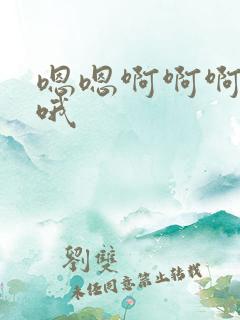 嗯嗯啊啊啊
哦
劉雙
未经同意禁止转载